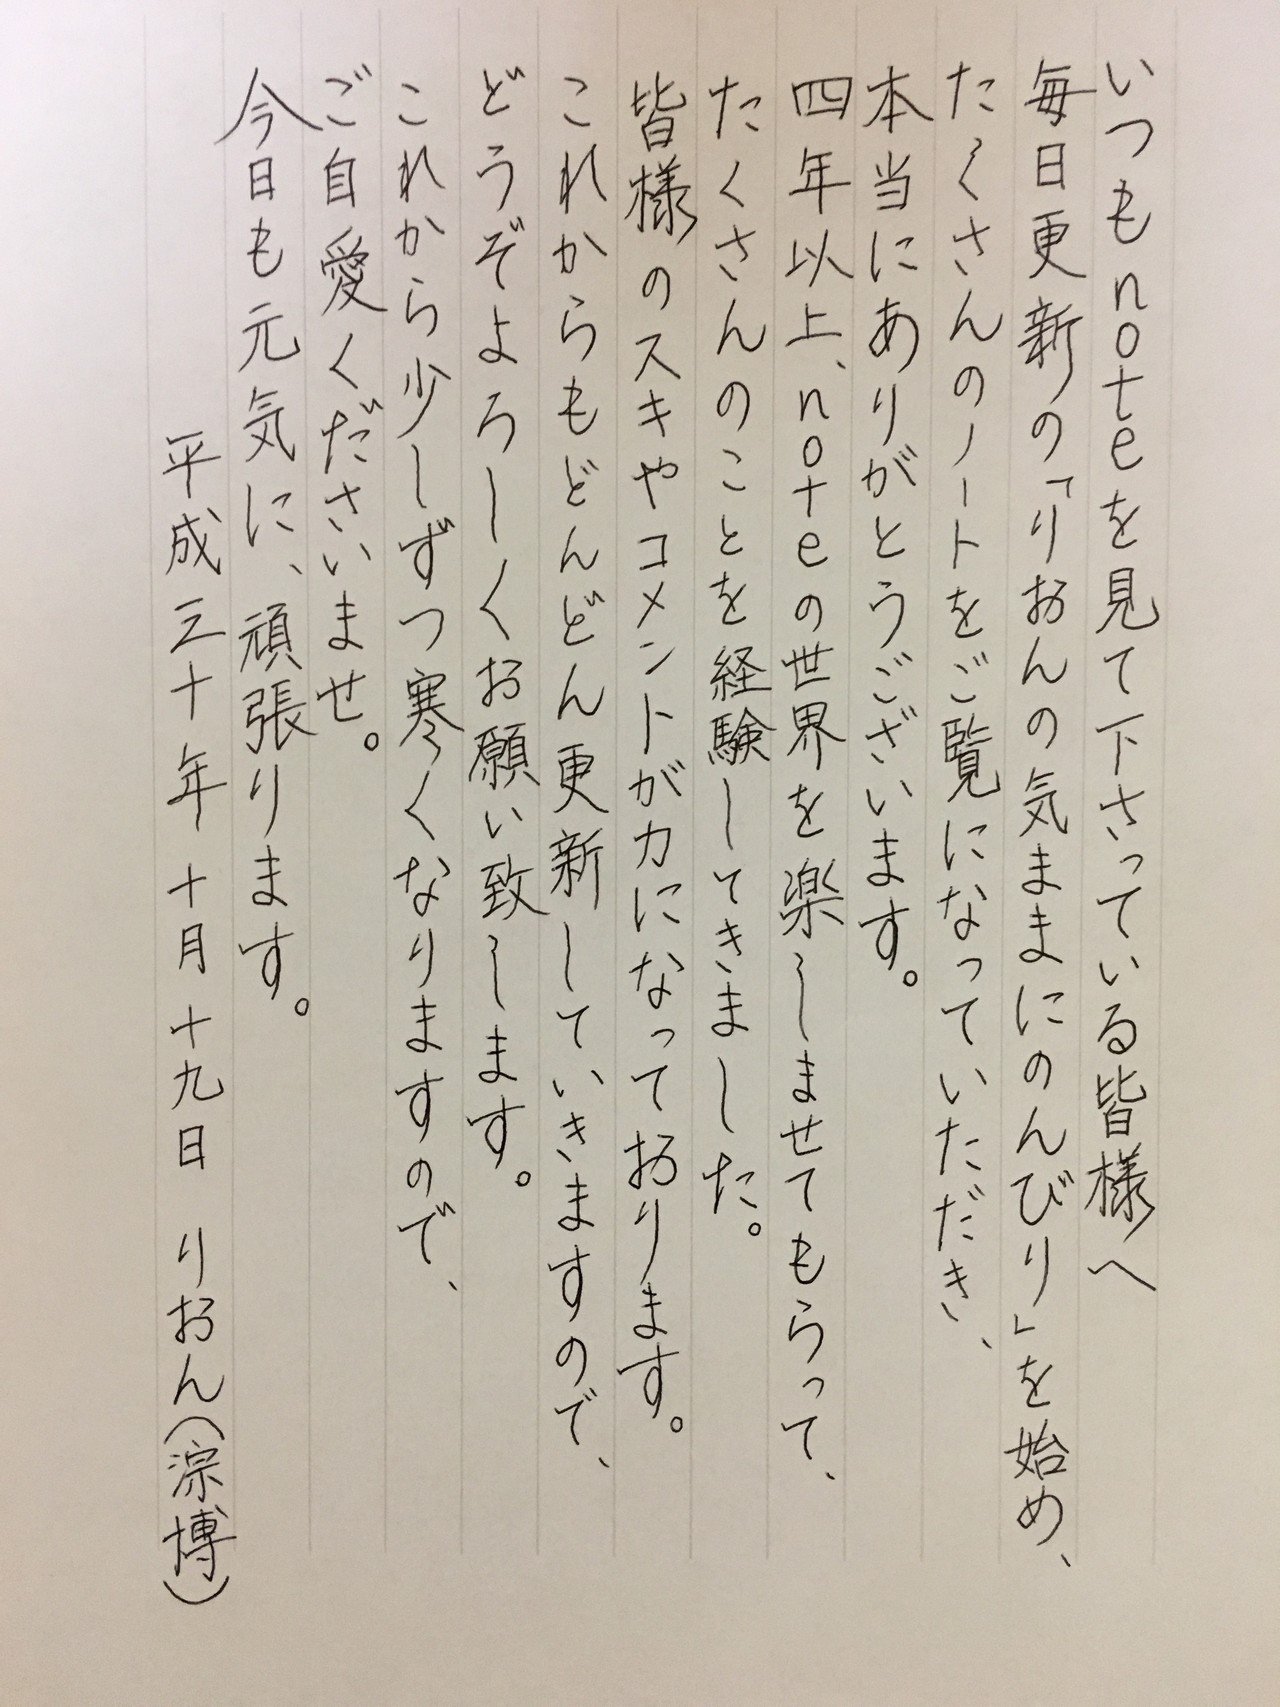 いつもnoteを見て下さっている皆様へ
毎日更新の「りおんの気ままにのんびり」を始め、
たくさんのノートをご覧になっていただき、
本当にありがとうございます。
四年以上、noteの世界を楽しませてもらって、
たくさんのことを経験してきました。
皆様のスキやコメントが力になっております。
これからもどんどん更新していきますので、
どうぞよろしくお願い致します。
これから少しずつ寒くなりますので、
ご自愛くださいませ。
今日も元気に、頑張ります。
平成三十年十月十九日 りおん(淙博)